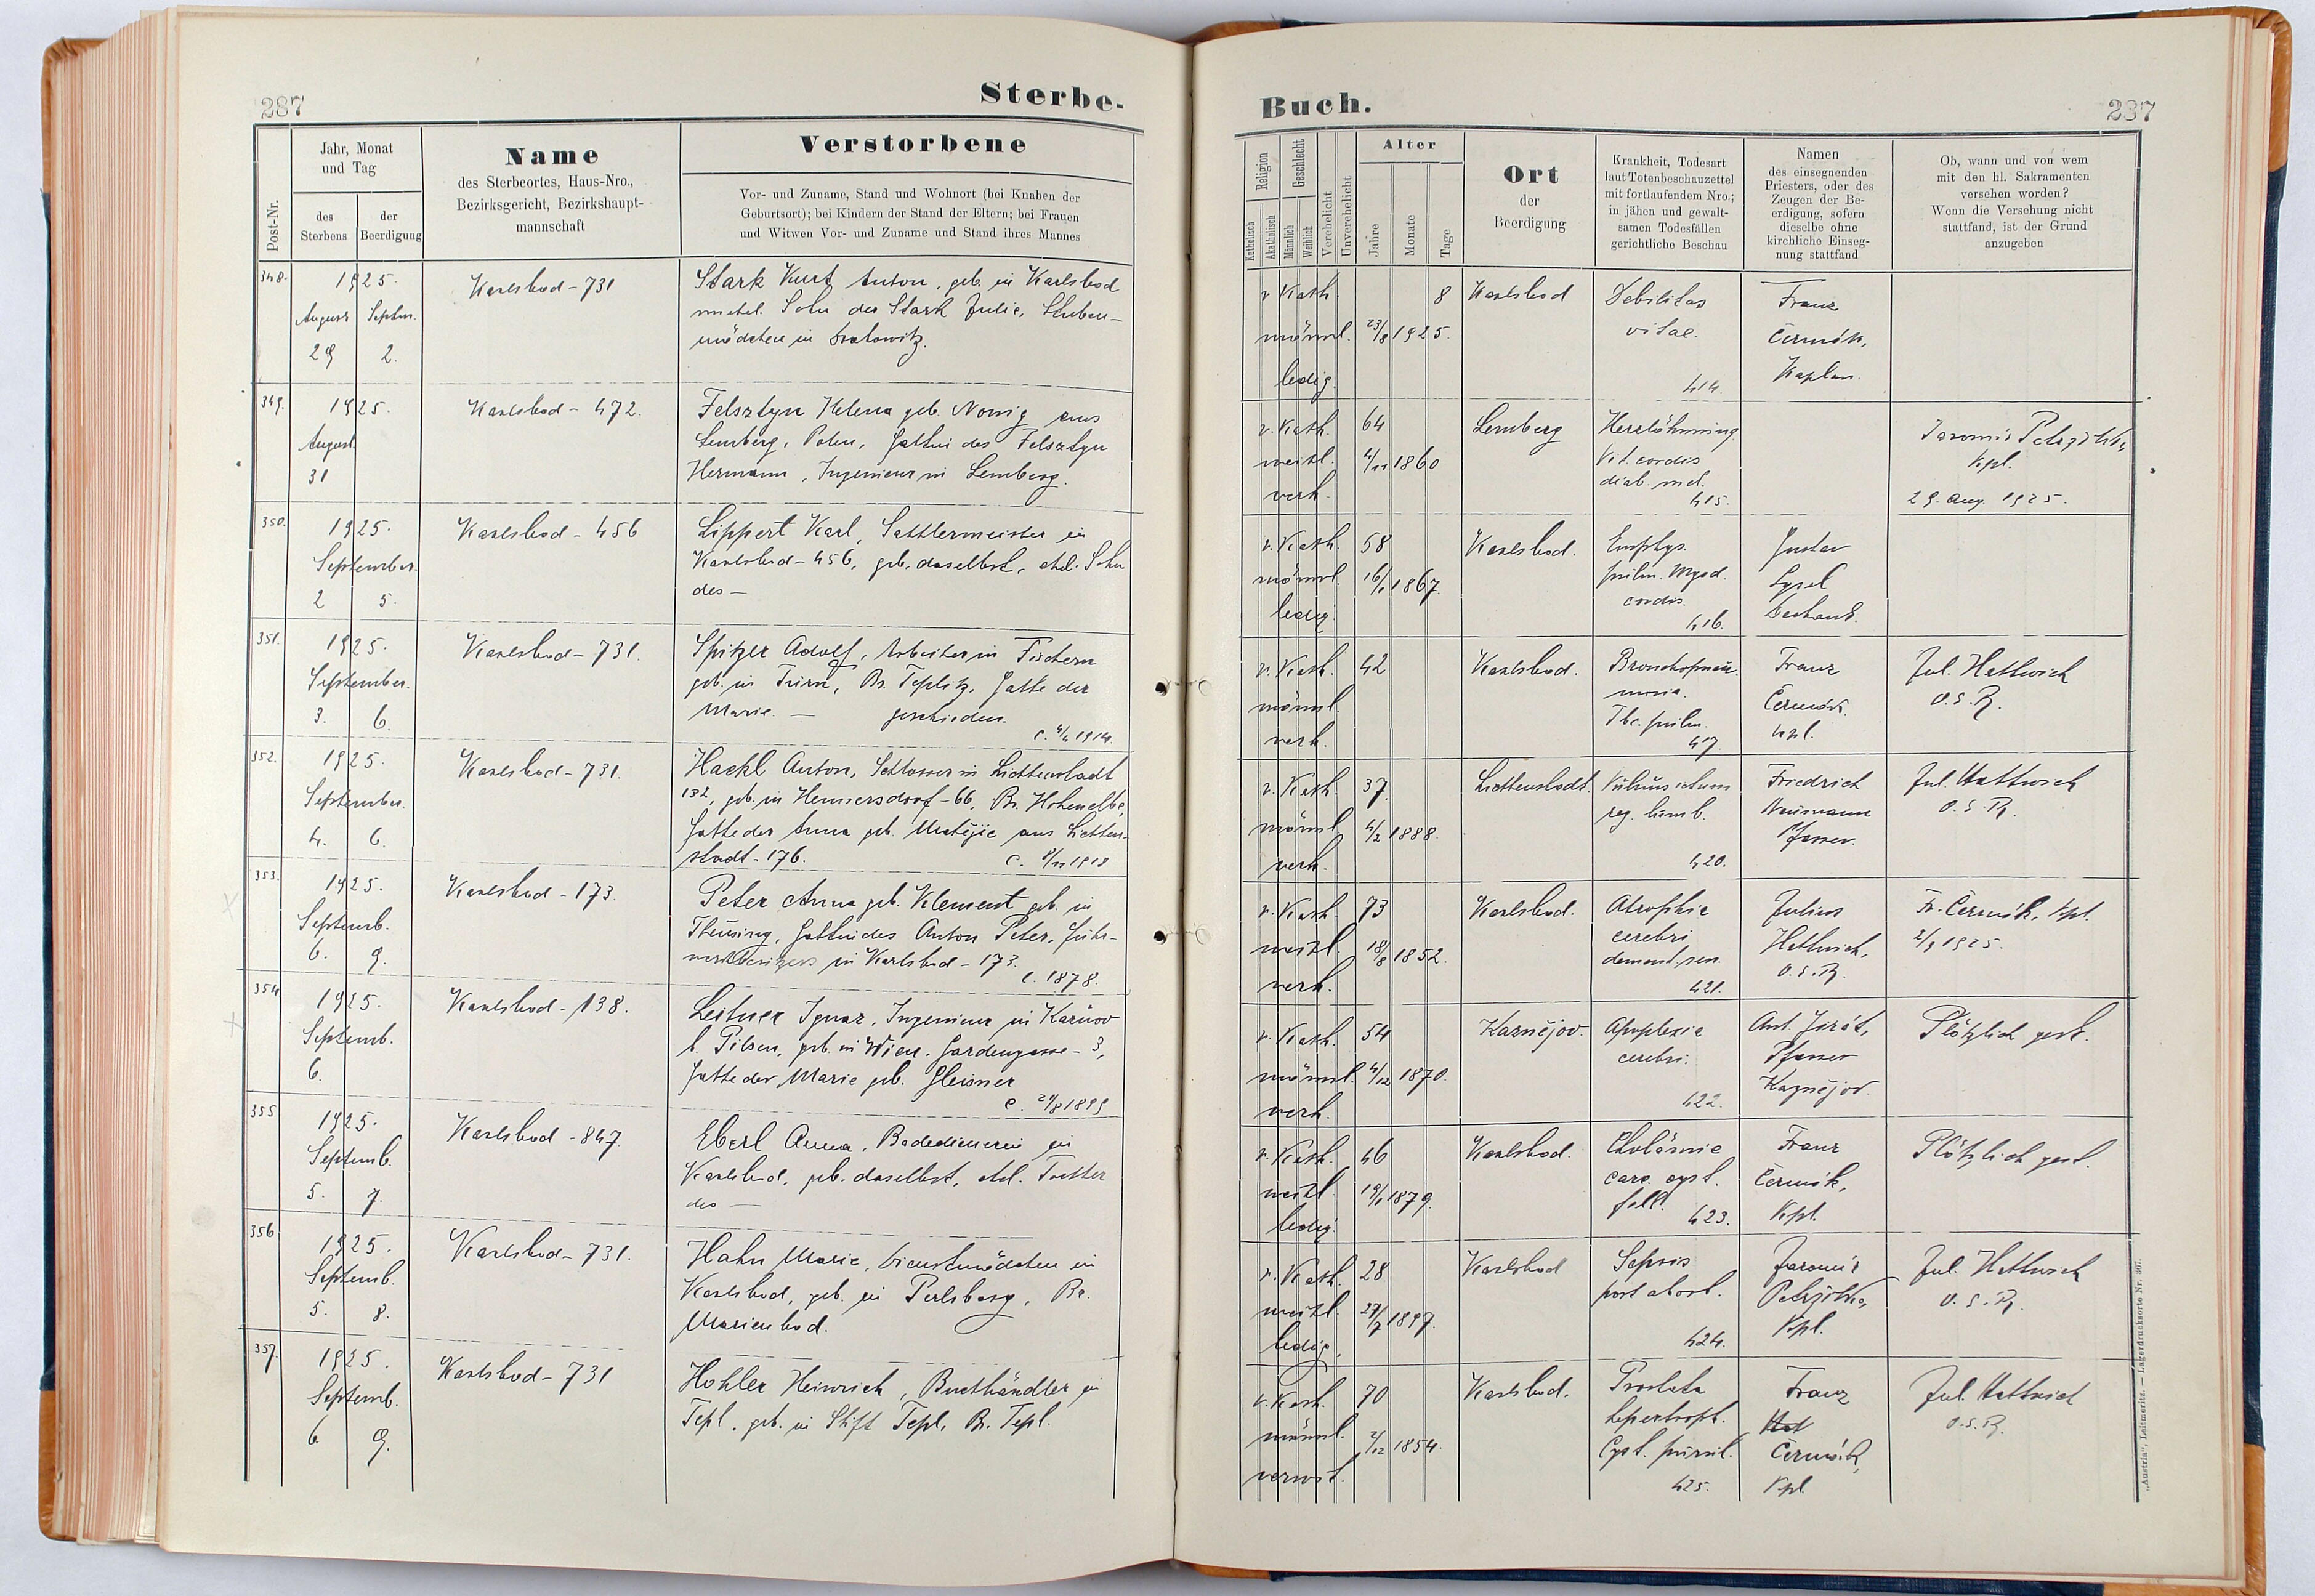 287
Sterbe-
Post-Nr.
Jahr, Monat
und Tag
des
Sterbens
der
Beerdigung
Name
des Sterbeortes, Haus-Nro.,
Bezirksgericht, Bezirkshaupt-
mannschaft
Verstorbene
Vor- und Zuname, Stand und Wohnort (bei Knaben der
Geburtsort); bei Kindern der Stand der Eltern; bei Frauen
und Witwen Vor- und Zuname und Stand ihres Mannes
348.
1925.
August Septem.
29 2.
Karlsbad - 731
Stark Kurt Anton, geb. in Karlsbad
unehel. Sohn der Stark Julie, Stuben-
mädchen in
349.
1925.
August
31
Karlsbad - 472.
Felsztyn Helena geb. aus
Lemberg, Polen, Gattin des Felsztyn
Hermann, Ingenieur in Lemberg.
350.
1925.
September.
2 5.
Karlsbad - 456
Lippert Karl, Sattlermeister in
Karlsbad - 456, geb. daselbst, ehel. Sohn
des —
351.
1925.
September.
3. 6.
Karlsbad - 731.
Spitzer Adolf, Arbeiter in Fischern
geb. in Turn, Bz. Teplitz, Gatte der
Marie. — geschieden.
C. 4/4 1914.
352.
1925.
September.
4. 6.
Karlsbad - 731.
Hackl Anton, Schlosser in Lichtenstadt
132, geb. in Hennersdorf - 66, Bz. Hohenelbe,
Gatte der Anna geb. Matějic aus Lichten-
stadt - 176. C. 9/11 1918
353.
1925.
Septemb.
6. 9.
Karlsbad - 173.
Peter Anna geb. Klement geb. in
Theusing, Gattin des Anton Peter, Fuhr-
werksbesitzers in Karlsbad - 173.
C. 1878.
354
1925.
Septemb.
6.
Karlsbad - 138.
Leitner Ignaz, Ingenieur in
b. Pilsen, geb. in Wien, - 3,
Gatte der Marie geb. Gleisner
C. 29/8 1899
355
1925.
Septemb.
5. 7.
Karlsbad - 847.
Eberl Anna, Badedienerin in
Karlsbad, geb. daselbst, ehel. Tochter
des —
356
1925.
Septemb.
5. 8.
Karlsbad - 731.
Hahn Marie, Dienstmädchen in
Karlsbad, geb. in Perlsberg, Bz.
Marienbad.
357.
1925.
Septemb.
6 9.
Karlsbad - 731
Hohler Heinrich, Buchhändler in
Tepl, geb. in Stift Tepl, Bz. Tepl.
Buch.
287
Religion
Katholisch
Akatholisch
Geschlecht
Männlich
Weiblich
Verehelicht
Unverehelicht
Alter
Jahre
Monate
Tage
Ort
der
Beerdigung
Krankheit, Todesart
laut Totenbeschauzettel
mit fortlaufendem Nro.;
in jähen und gewalt-
samen Todesfällen
gerichtliche Beschau
Namen
des einsegnenden
Priesters, oder des
Zeugen der Be-
erdigung, sofern
dieselbe ohne
kirchliche Einseg-
nung stattfand
Ob, wann und von wem
mit den hl. Sakramenten
versehen worden?
Wenn die Versehung nicht
stattfand, ist der Grund
anzugeben
r. Kath.
männl.
ledig.
8
23/8 1925.
Karlsbad
Debilitas
vitae.
414.
Franz
Čermák,
Kaplan.
r. Kath.
weibl.
verh.
64
4/11 1860
Lemberg
Herzlähmung
Vit. cordis
diab. mel.
415.
Jaromir Petrželka,
Kpl.
29. Aug. 1925.
r. Kath.
männl.
ledig.
58
16/1 1867.
Karlsbad.
Emphys.
pulm. Myod.
cordis.
416.
Gustav
Lysel
Dechant.
r. Kath.
männl.
verh.
42
Karlsbad.
Bronchopneu-
monia.
Tbc. pulm.
417.
Franz
Čermák.
Kpl.
Jul. Hattwich
O.S.R.
r. Kath.
männl.
verh.
37.
4/2 1888.
Lichtenstadt.
Vulnus ictum
reg. lumb.
420.
Friedrich
Neumann
Pfarrer.
Jul. Hattwich
O.S.R.
r. Kath.
weibl.
verh.
73
18/8 1852.
Karlsbad.
Atrophie
cerebri
dement. sen.
421.
Julius
Hattwich,
O.S.R.
Fr. Čermák, Kpl.
2/9 1925.
r. Kath.
männl.
verh.
54
4/12 1870.
Kaznějov.
Apoplexia
cerebri.
422.
Ant.
Pfarrer
Kaznějov.
Plötzlich gest.
r. Kath.
weibl.
ledig.
46
19/1 1879.
Karlsbad.
Cholämie
carc. cyst.
fell. 423.
Franz
Čermák,
Kpl.
Plötzlich gest.
r. Kath.
weibl.
ledig.
28
27/7 1897.
Karlsbad
Sepsis
post abort.
424.
Jaromir
Petrželka,
Kpl.
Jul. Hattwich
O.S.R.
r. Kath.
männl.
verwit.
70
2/12 1854.
Karlsbad.
Prostata
hypertroph.
Cyst. purul.
425.
Franz
Čermák,
Kpl
Jul. Hattwich
O.S.R.
„Austria“, Leitmeritz. — Lagerdrucksorte Nr. 507.